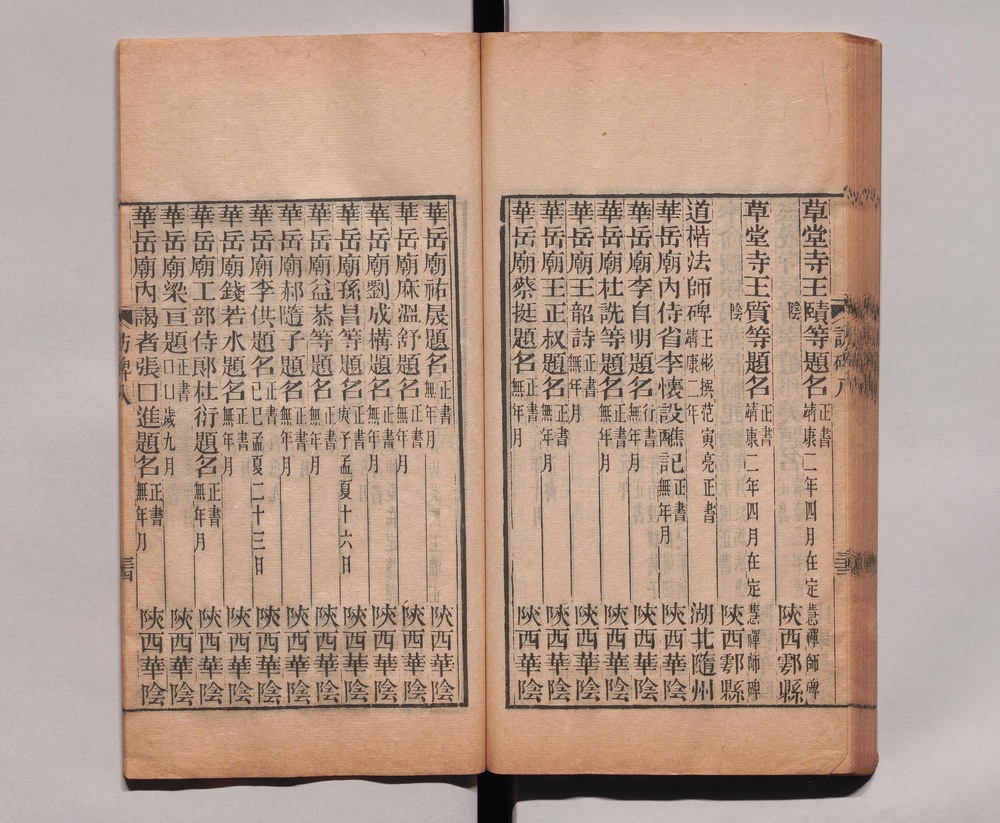 草堂寺王賾等題名正書靖康二年四月在定慧禪師碑
陰 陝西鄠縣
草堂寺王質等題名正書靖康二年四月在定慧禪師碑
陰 陝西鄠縣
道楷法師碑王彬撰范寅亮正書靖康二年 湖北隨州
華岳廟內侍省李懷設醮記正書無年月 陝西華陰
華岳廟李自明題名行書無年月 陝西華陰
華岳廟杜詵等題名正書無年月 陝西華陰
華岳廟王韶詩正書無年月 陝西華陰
華岳廟王正叔題名正書無年月 陝西華陰
華岳廟蔡挺題名正書無年月 陝西華陰
華岳廟祐展題名正書無年月 陝西華陰
華岳廟麻溫舒題名正書無年月 陝西華陰
華岳廟劉成構題名正書無年月 陝西華陰
華岳廟孫昌等題名正書庚子孟夏十六日 陝西華陰
華岳廟益恭等題名正書無年月 陝西華陰
華岳廟郝隨子題名正書無年月 陝西華陰
華岳廟李供題名正書己巳孟夏二十三日 陝西華陰
華岳廟錢若水題名正書無年月 陝西華陰
華岳廟工部侍郎杜衍題名正書無年月 陝西華陰
華岳廟梁亘題名正書口口歲九月 陝西華陰
華岳廟內謁者張口進題名正書無年月 陝西華陰
訪碑八